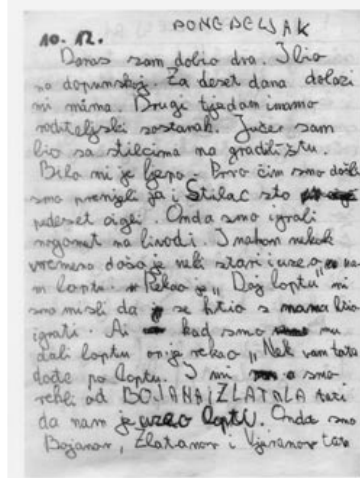 10. 12. PONEDELJAK
Danas sam dobio dva. I bio
na dopunskoj. Za deset dana dolazi
mi mama. Drugi tjedan imamo
roditeljski sastanak. Jučer sam
bio sa stilcima na gradilištu.
Bilo mi je ljepo. Prvo čim smo došli
smo prenijeli ja i Stilac sto
pedeset cigli. Onda smo igrali
nogomet na livodi. I nakon nekok
vremena došo je neki stari i uzeo
m loptu. Rekao je „Daj loptu" mi
smo misli da je se htio s nama
igrati. Ai kad smo mu
dali loptu on je rekao „Nek vam tata
dođe po loptu. I mi smo
rekli od BOJANA I ZLATALA tati
da nam je uzeo loptu. Onda smo
Bojanov, Zlatanov i Vjeranov tata